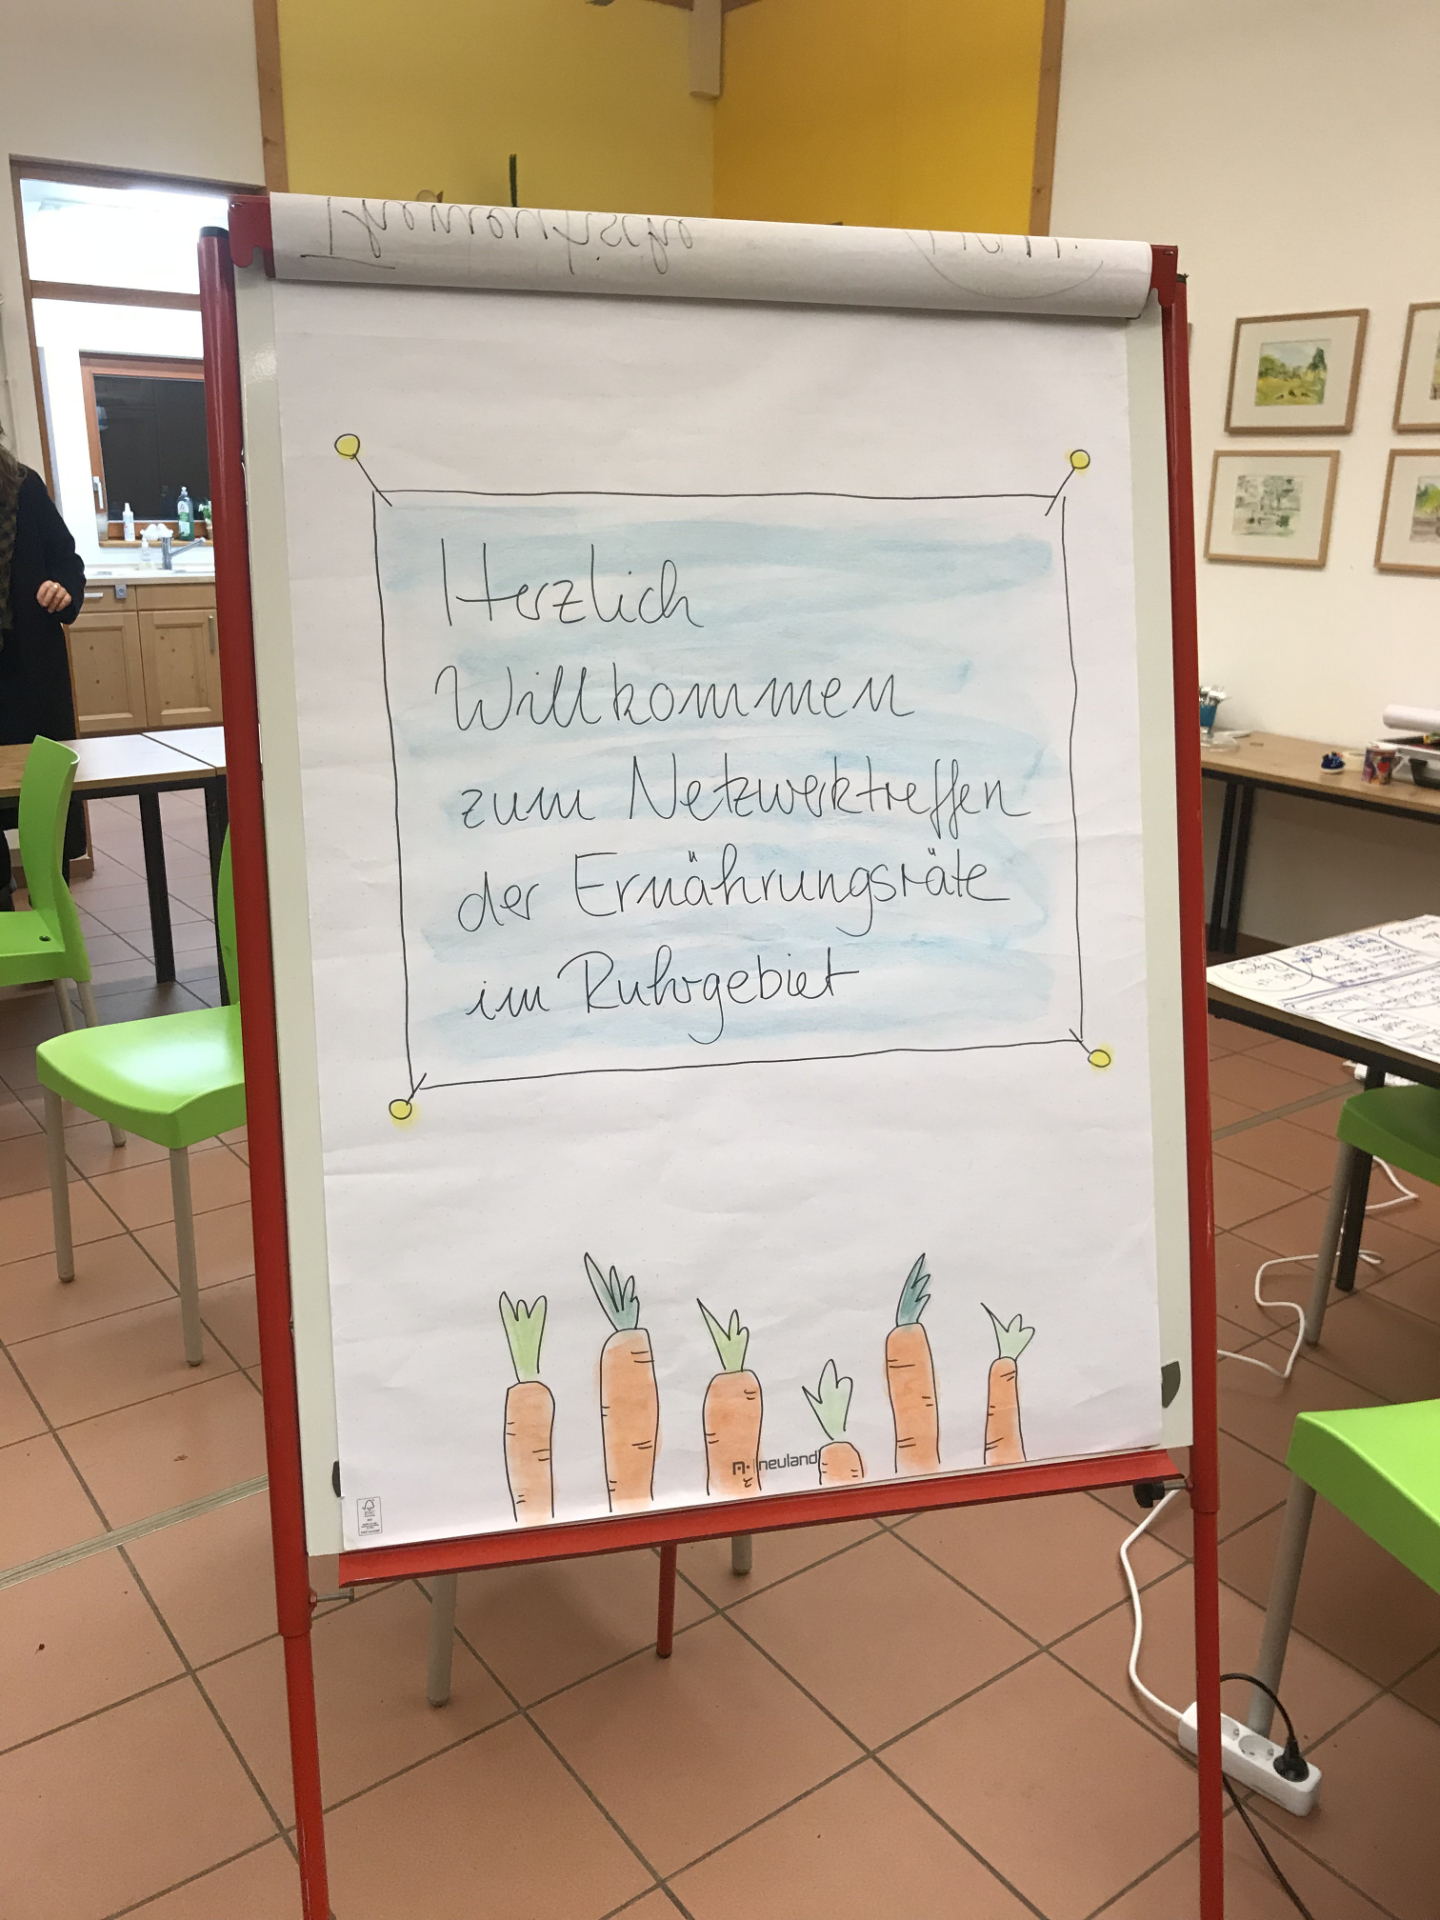 Thementische
Herzlich
Willkommen
zum Netzwerktreffen
der Ernährungsräte
im Ruhrgebiet
neuland